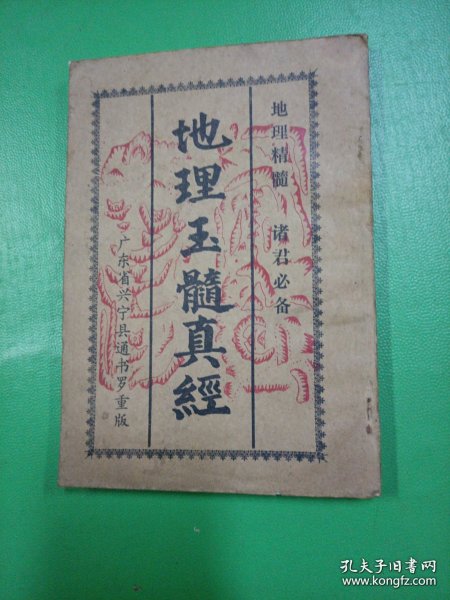 地理精髓 诸君必备
地理玉髓真經
广东省兴宁县通书罗重版
孔夫子旧书网
www.kongfz.com